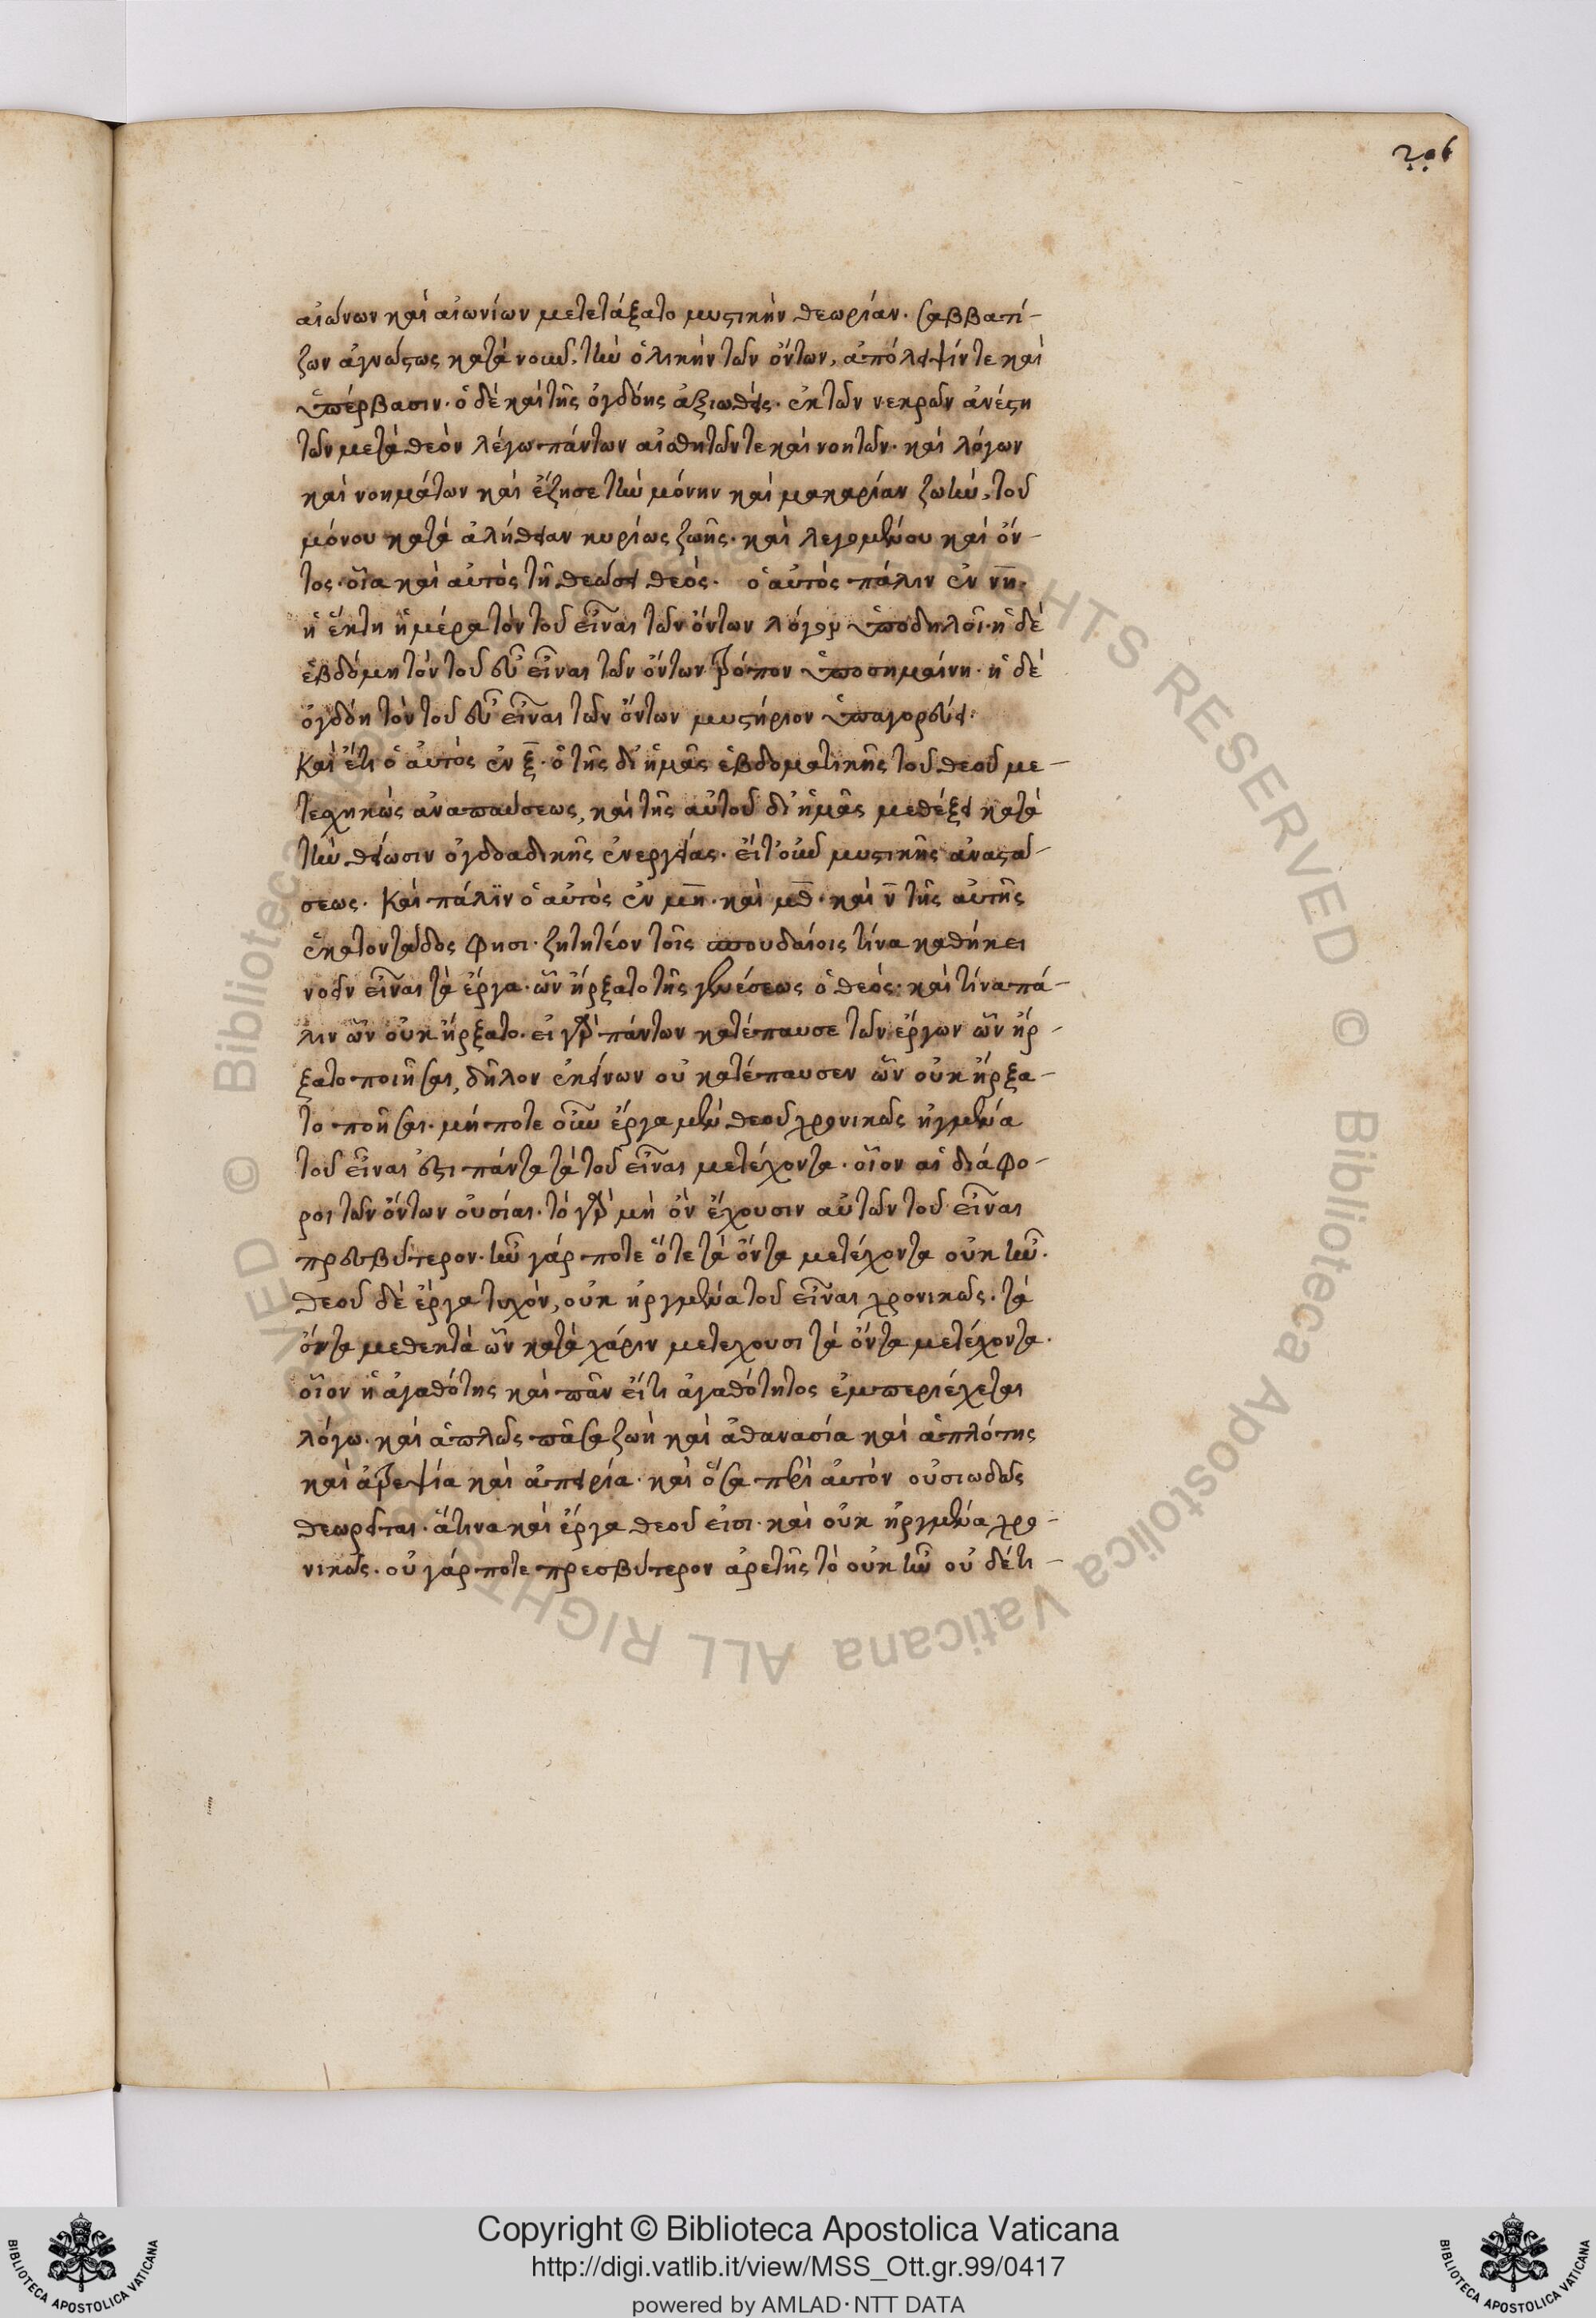 206
αἰώνων καὶ αἰωνίων μετετάξατο μυστικὴν θεωρίαν· σαββατί-
ζων ἀγνώστως κατὰ νοῦν, τὴν ὁλικὴν τῶν ὄντων, ἀπόλειψίν τε καὶ
ὑπέρβασιν· ὁ δὲ καὶ τῆς ὀγδόης ἀξιωθεὶς· ἐκ τῶν νεκρῶν ἀνέστη
τῶν μετὰ θεὸν λέγω πάντων αἰσθητῶν τε καὶ νοητῶν· καὶ λόγων
καὶ νοημάτων καὶ ἔζησε τὴν μόνην καὶ μακαρίαν ζωὴν, τοῦ
μόνου κατὰ ἀλήθειαν κυρίως ζωῆς· καὶ λεγομένου καὶ ὄν-
τος· οἷα καὶ αὐτὸς τῆ θεώσει θεός· ὁ αὐτὸς πάλιν ἐν νη·
ἡ ἕκτη ἡμέρα τὸν τοῦ εἶναι τῶν ὄντων λόγον ὑποδηλοῖ· ἡ δὲ
ἑβδόμη τὸν τοῦ εὖ εἶναι τῶν ὄντων τρόπον ὑποσημαίνη· ἡ δὲ
ὀγδόη τὸν τοῦ εὖ εἶναι τῶν ὄντων μυστήριον ὑπαγορεύει·
Καὶ ἔτι ὁ αὐτὸς ἐν ξ· ὁ τῆς δι' ἡμᾶς ἑβδοματικῆς τοῦ θεοῦ με-
τεχηκὼς ἀναπαύσεως, καὶ τῆς αὐτοῦ δι' ἡμᾶς μεθέξει κατὰ
τὴν θείωσιν ὀγδοαδικῆς ἐνεργείας· εἴτ' οὖν μυστικῆς ἀναστά-
σεως. Καὶ πάλϊν ὁ αὐτὸς ἐν μη· καὶ μθ· καὶ ν τῆς αὐτῆς
ἑκατοντάδος φησι· ζητητέον τοῖς σπουδαίοις τίνα καθήκει
νοεῖν εἶναι τὰ ἔργα· ὧν ἤρξατο τῆς γενέσεως ὁ θεός· καὶ τίνα πά-
λιν ὧν οὐκ ἤρξατο· εἰ γὰρ πάντων κατέπαυσε τῶν ἔργων ὧν ἤρ-
ξατο ποιῆσαι, δῆλον ἐκείνων οὐ κατέπαυσεν ὧν οὐκ ἤρξα-
το ποιῆσαι· μήποτε οὖν ἔργα μὲν θεοῦ χρονικῶς ἠγμένα
τοῦ εἶναι ἐστι πάντα τὰ τοῦ εἶναι μετέχοντα· οἷον αἱ διάφο-
ροι τῶν ὄντων οὐσίαι· τὸ γὰρ μὴ ὂν ἔχουσιν αὐτῶν τοῦ εἶναι
πρεσβύτερον· ἦν γάρ ποτε ὅτε τὰ ὄντα μετέχοντα οὐκ ἦν·
θεοῦ δὲ ἔργα τυχὸν, οὐκ ἠργμένα τοῦ εἶναι χρονικῶς· τὰ
ὄντα μεθεκτὰ ὧν κατὰ χάριν μετεχουσι τὰ ὄντα μετέχοντα·
οἷον ἡ ἀγαθότης καὶ πᾶν εἴτι ἀγαθότητος ἐμπεριέχεται
λόγω· καὶ ἁπλῶς πᾶσα ζωὴ καὶ ἀθανασία καὶ ἁπλότης
καὶ ἀτρεψία καὶ ἀπειρία· καὶ ὅσα περὶ αὐτὸν οὐσιωδῶς
θεωρεῖται· ἅτινα καὶ ἔργα θεοῦ εἰσι· καὶ οὐκ ἠργμένα χρο-
νικῶς· οὐ γάρ ποτε πρεσβύτερον ἀρετῆς τὸ οὐκ ἦν οὐ δέτι-
Copyright © Biblioteca Apostolica Vaticana
http://digi.vatlib.it/view/MSS_Ott.gr.99/0417
powered by AMLAD·NTT DATA
BIBLIOTECA APOSTOLICA VATICANA
BIBLIOTECA APOSTOLICA VATICANA
© Biblioteca Apostolica Vaticana ALL RIGHTS RESERVED © Biblioteca Apostolica Vaticana ALL RIGHTS RESERVED